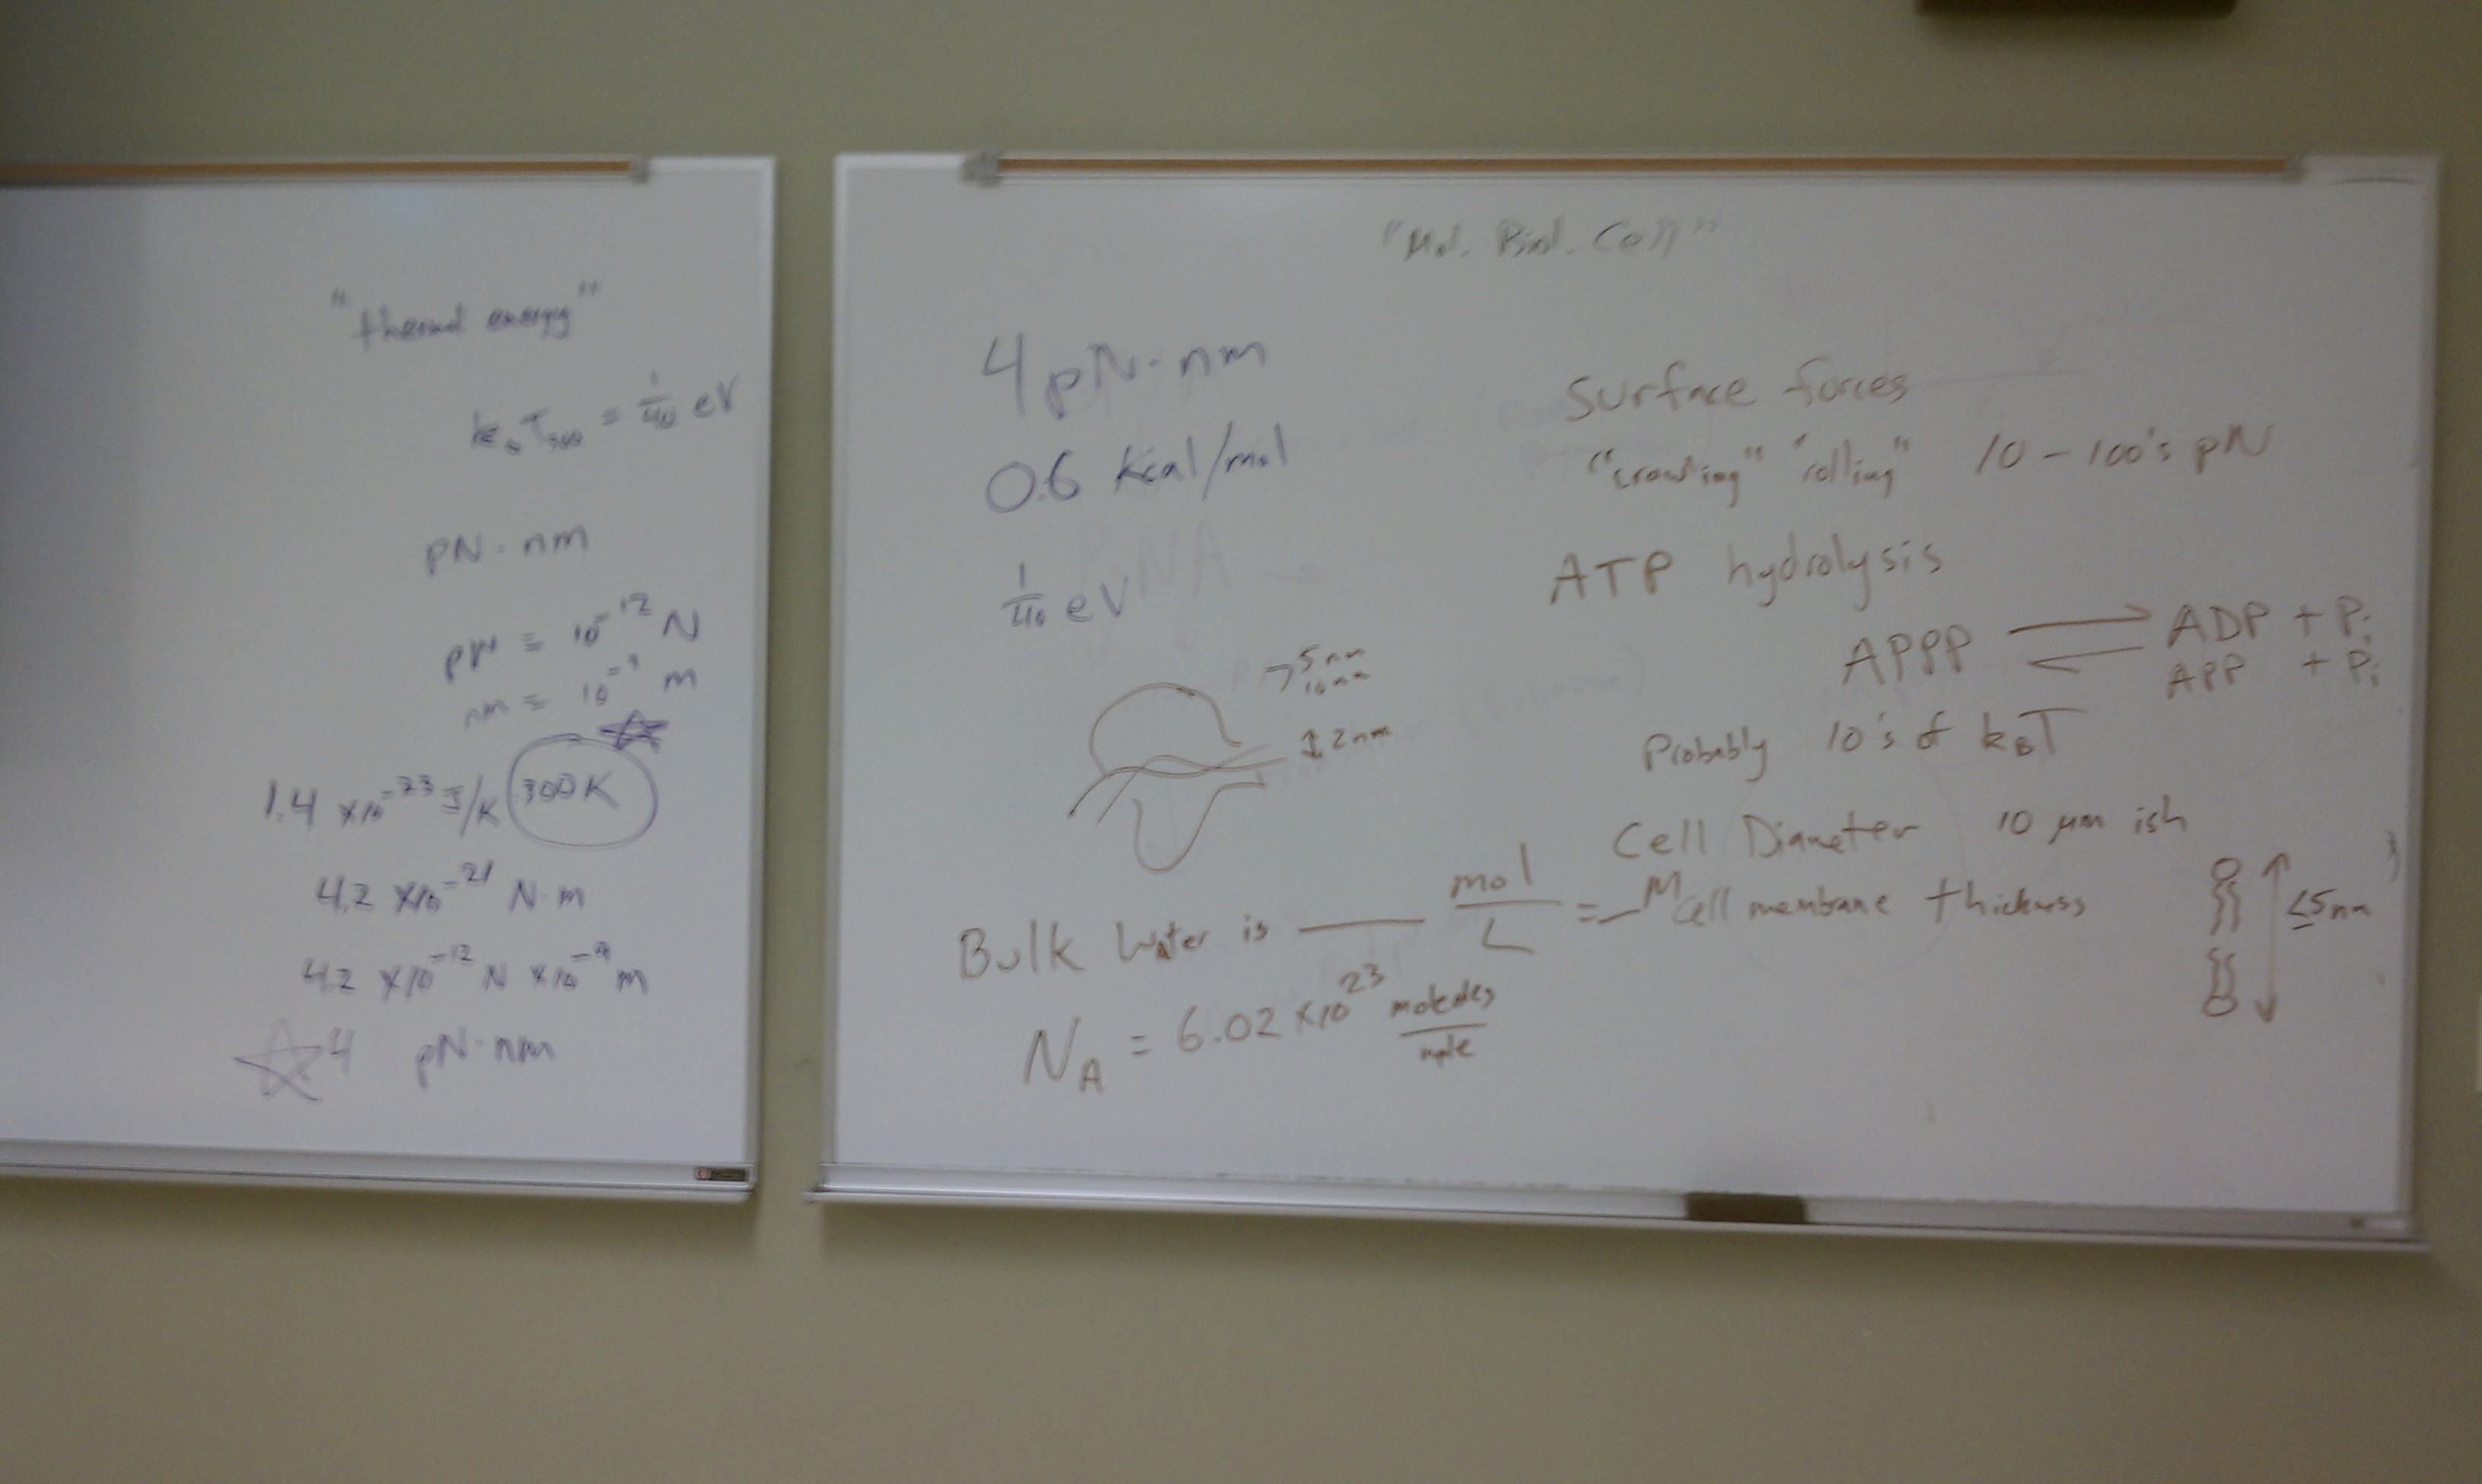 "thermal energy"
kBT300 = 1/40 eV
pN·nm
pN = 10^-12 N
nm = 10^-9 m
1.4 x10^-23 J/K 300K
4.2 x10^-21 N·m
4.2 x10^-12 N x10^-9 m
4 pN·nm
"Mol. Biol. Cell"
4 pN·nm
0.6 kcal/mol
1/40 eV
5 nm
10 nm
2 nm
Surface forces
"crawling" "rolling" 10 - 100's pN
ATP hydrolysis
APPP ADP + Pi
APP + Pi
Probably 10's of kBT
Cell Diameter 10 μm ish
Cell membrane thickness ≤5nm
Bulk Water is ___ mol/L = _M
NA = 6.02 x10^23 molecules/mole